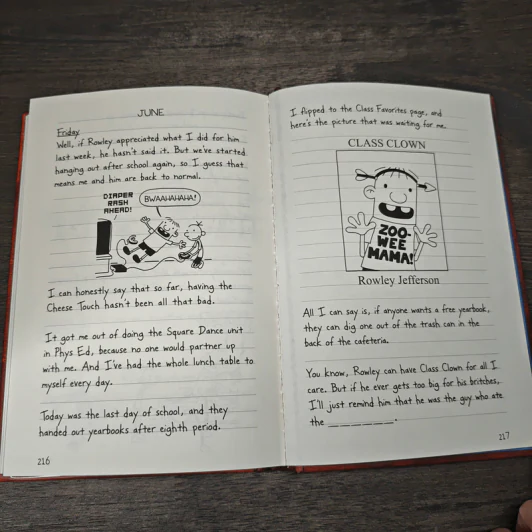 JUNE
Friday
Well, if Rowley appreciated what I did for him
last week, he hasn't said it. But we've started
hanging out after school again, so I guess that
means me and him are back to normal.
DIAPER
RASH
AHEAD!
BWAAHAHAHA!
I can honestly say that so far, having the
Cheese Touch hasn't been all that bad.
It got me out of doing the Square Dance unit
in Phys Ed, because no one would partner up
with me. And I've had the whole lunch table to
myself every day.
Today was the last day of school, and they
handed out yearbooks after eighth period.
216
I flipped to the Class Favorites page, and
here's the picture that was waiting for me.
CLASS CLOWN
ZOO-
WEE
MAMA!
Rowley Jefferson
All I can say is, if anyone wants a free yearbook,
they can dig one out of the trash can in the
back of the cafeteria.
You know, Rowley can have Class Clown for all I
care. But if he ever gets too big for his britches,
I'll just remind him that he was the guy who ate
the _ _ _ _ _ _ _ _.
217